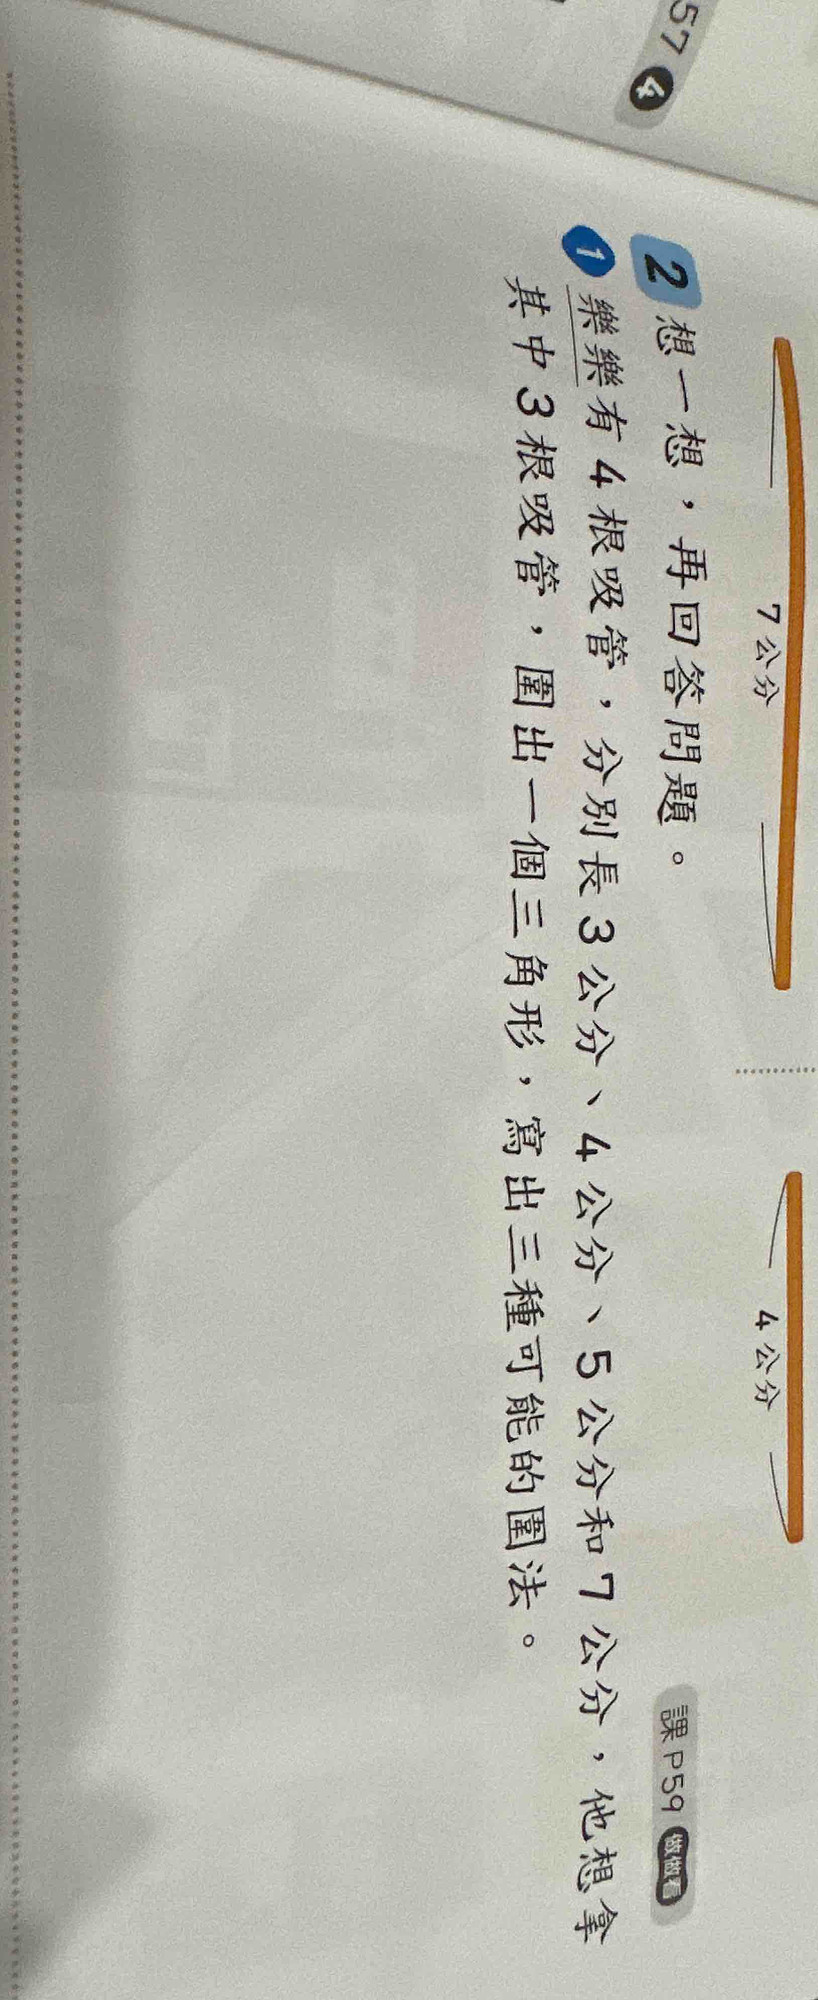 57 4
7公分
4公分
2 想一想，再回答問題。
課P59 做做看
1 樂樂有4根吸管，分別長3公分、4公分、5公分和7公分，他想拿
其中3根吸管，圍出一個三角形，寫出三種可能的圍法。